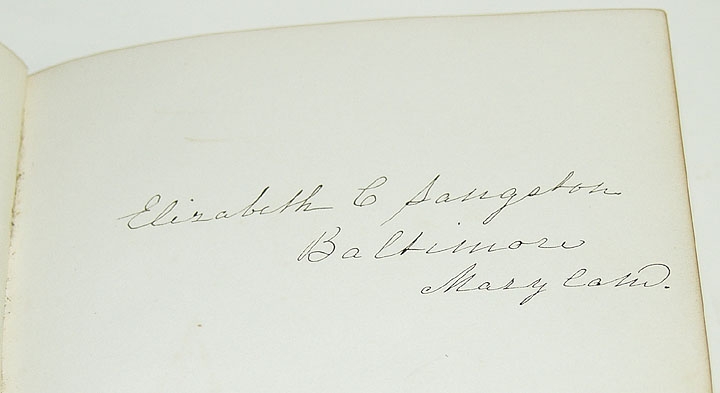 Elizabeth C Sangston
Baltimore
Maryland.